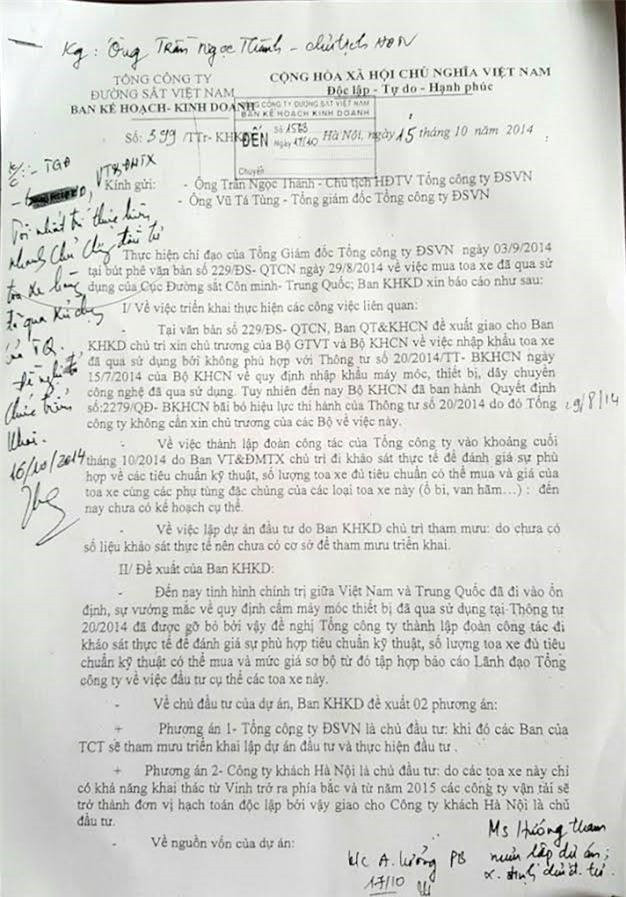 Kg: Ông Trần Ngọc Thành - chủ tịch HĐTV
TỔNG CÔNG TY
ĐƯỜNG SẮT VIỆT NAM
BAN KẾ HOẠCH- KINH DOANH
CỘNG HÒA XÃ HỘI CHỦ NGHĨA VIỆT NAM
Độc lập - Tự do - Hạnh phúc
TỔNG CÔNG TY ĐƯỜNG SẮT VIỆT NAM
BAN KẾ HOẠCH KINH DOANH
ĐẾN
Số: 1583
Ngày 17/10
Chuyển
Số: 399 /TTr- KHKD
Hà Nội, ngày 15 tháng 10 năm 2014
K/c: - TGĐ
VT&ĐMTX
Kính gửi: - Ông Trần Ngọc Thành - Chủ tịch HĐTV Tổng công ty ĐSVN
- Ông Vũ Tá Tùng - Tổng giám đốc Tổng công ty ĐSVN
Tôi nhất trí thực hiện
nhanh chủ đầu tư
toa xe hàng
đã qua sử dụng
của TQ.
Đề nghị tổ
chức triển
khai.
16/10/2014
Thực hiện chỉ đạo của Tổng Giám đốc Tổng công ty ĐSVN ngày 03/9/2014
tại bút phê văn bản số 229/ĐS- QTCN ngày 29/8/2014 về việc mua toa xe đã qua sử
dụng của Cục Đường sắt Côn minh- Trung Quốc; Ban KHKD xin báo cáo như sau:
I/ Về việc triển khai thực hiện các công việc liên quan:
- Tại văn bản số 229/ĐS- QTCN, Ban QT&KHCN đề xuất giao cho Ban
KHKD chủ trì xin chủ trương của Bộ GTVT và Bộ KHCN về việc nhập khẩu toa xe
đã qua sử dụng bởi không phù hợp với Thông tư số 20/2014/TT- BKHCN ngày
15/7/2014 của Bộ KHCN về quy định nhập khẩu máy móc, thiết bị, dây chuyền
công nghệ đã qua sử dụng. Tuy nhiên đến nay Bộ KHCN đã ban hành Quyết định
số:2279/QĐ- BKHCN bãi bỏ hiệu lực thi hành của Thông tư số 20/2014 do đó Tổng
29/8/14
công ty không cần xin chủ trương của các Bộ về việc này.
- Về việc thành lập đoàn công tác của Tổng công ty vào khoảng cuối
tháng 10/2014 do Ban VT&ĐMTX chủ trì đi khảo sát thực tế để đánh giá sự phù
hợp về các tiêu chuẩn kỹ thuật, số lượng toa xe đủ tiêu chuẩn có thể mua và giá của
toa xe cùng các phụ tùng đặc chủng của các loại toa xe này (ổ bi, van hãm…) : đến
nay chưa có kế hoạch cụ thể.
- Về việc lập dự án đầu tư do Ban KHKD chủ trì tham mưu: do chưa có
số liệu khảo sát thực tế nên chưa có cơ sở để tham mưu triển khai.
II/ Đề xuất của Ban KHKD:
- Đến nay tình hình chính trị giữa Việt Nam và Trung Quốc đã đi vào ổn
định, sự vướng mắc về quy định cấm máy móc thiết bị đã qua sử dụng tại Thông tư
20/2014 đã được gỡ bỏ bởi vậy đề nghị Tổng công ty thành lập đoàn công tác đi
khảo sát thực tế để đánh giá sự phù hợp tiêu chuẩn kỹ thuật, số lượng toa xe đủ tiêu
chuẩn kỹ thuật có thể mua và mức giá sơ bộ từ đó tập hợp báo cáo Lãnh đạo Tổng
công ty về việc đầu tư cụ thể các toa xe này.
- Về chủ đầu tư của dự án, Ban KHKD đề xuất 02 phương án:
+ Phương án 1- Tổng công ty ĐSVN là chủ đầu tư: khi đó các Ban của
TCT sẽ tham mưu triển khai lập dự án đầu tư và thực hiện đầu tư .
+ Phương án 2- Công ty khách Hà Nội là chủ đầu tư: do các toa xe này chỉ
có khả năng khai thác từ Vinh trở ra phía bắc và từ năm 2015 các công ty vận tải sẽ
trở thành đơn vị hạch toán độc lập bởi vậy giao cho Công ty khách Hà Nội là chủ
đầu tư.
- Về nguồn vốn của dự án:
K/c A. Lưỡng PB
17/10
Ms Hương tham
mưu lập dự án;